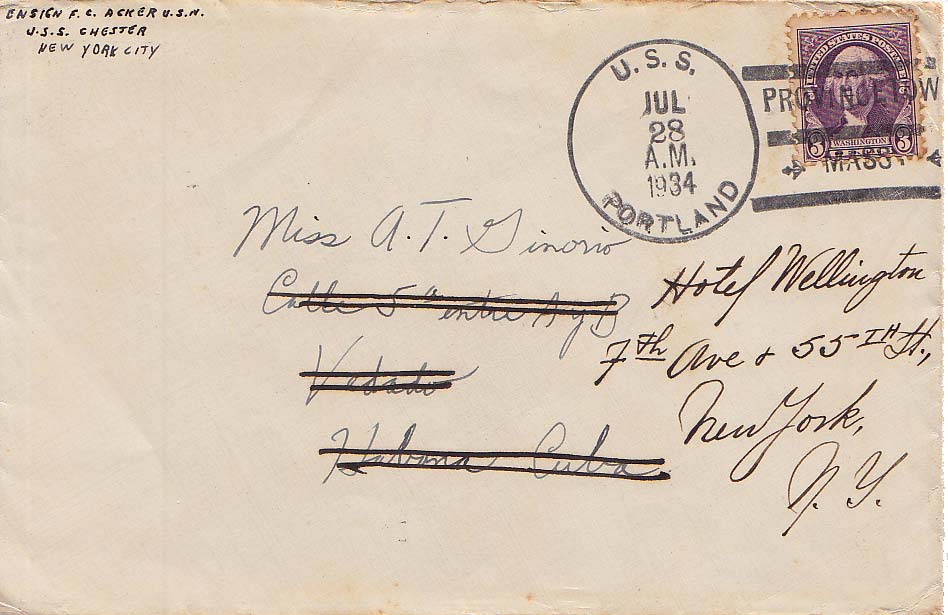 ENSIGN F. C. ACKER U.S.N.
U.S.S. CHESTER
NEW YORK CITY
U.S.S.
JUL
28
A.M.
1934
PORTLAND
PROVINCETOW
MASS
UNITED STATES POSTAGE
WASHINGTON
3 3
Miss A. T. Ginorio
Calle 5ª entre A y B
Vedado
Habana Cuba.
Hotel Wellington
7th Ave & 55TH St.,
New York,
N. Y.